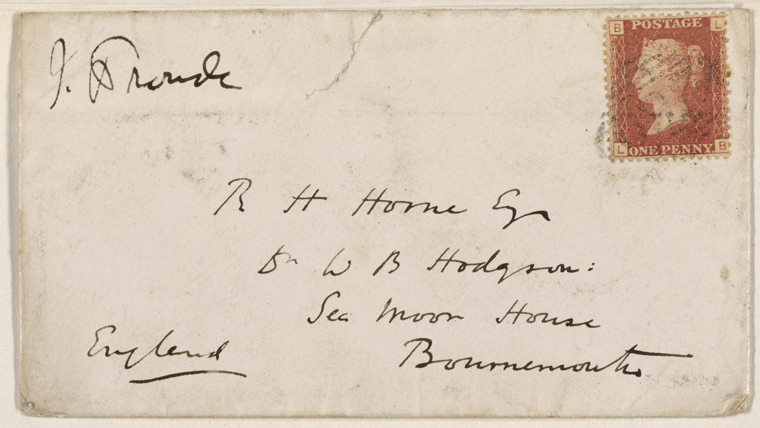 J. A. Froude
B POSTAGE L
L ONE PENNY B
R H Horne Esq
Dr W B Hodgson:
Sea Moor House
Bournemouth
England